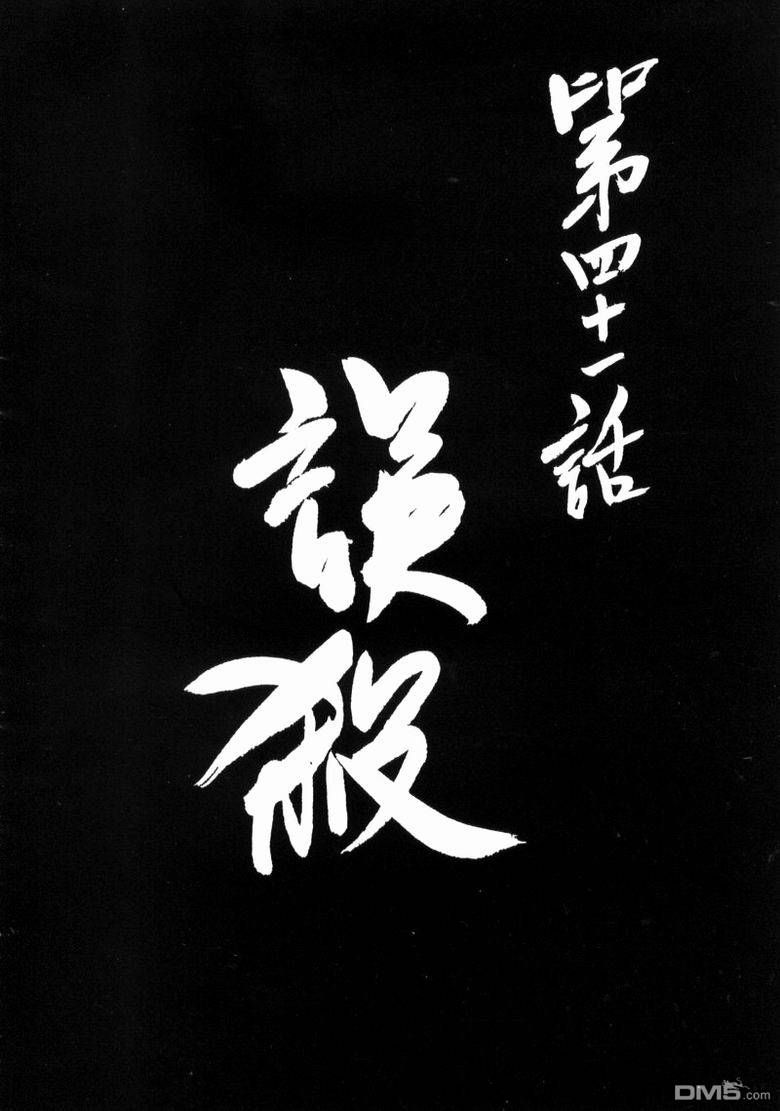 第四十一話
誤殺
DM5.com